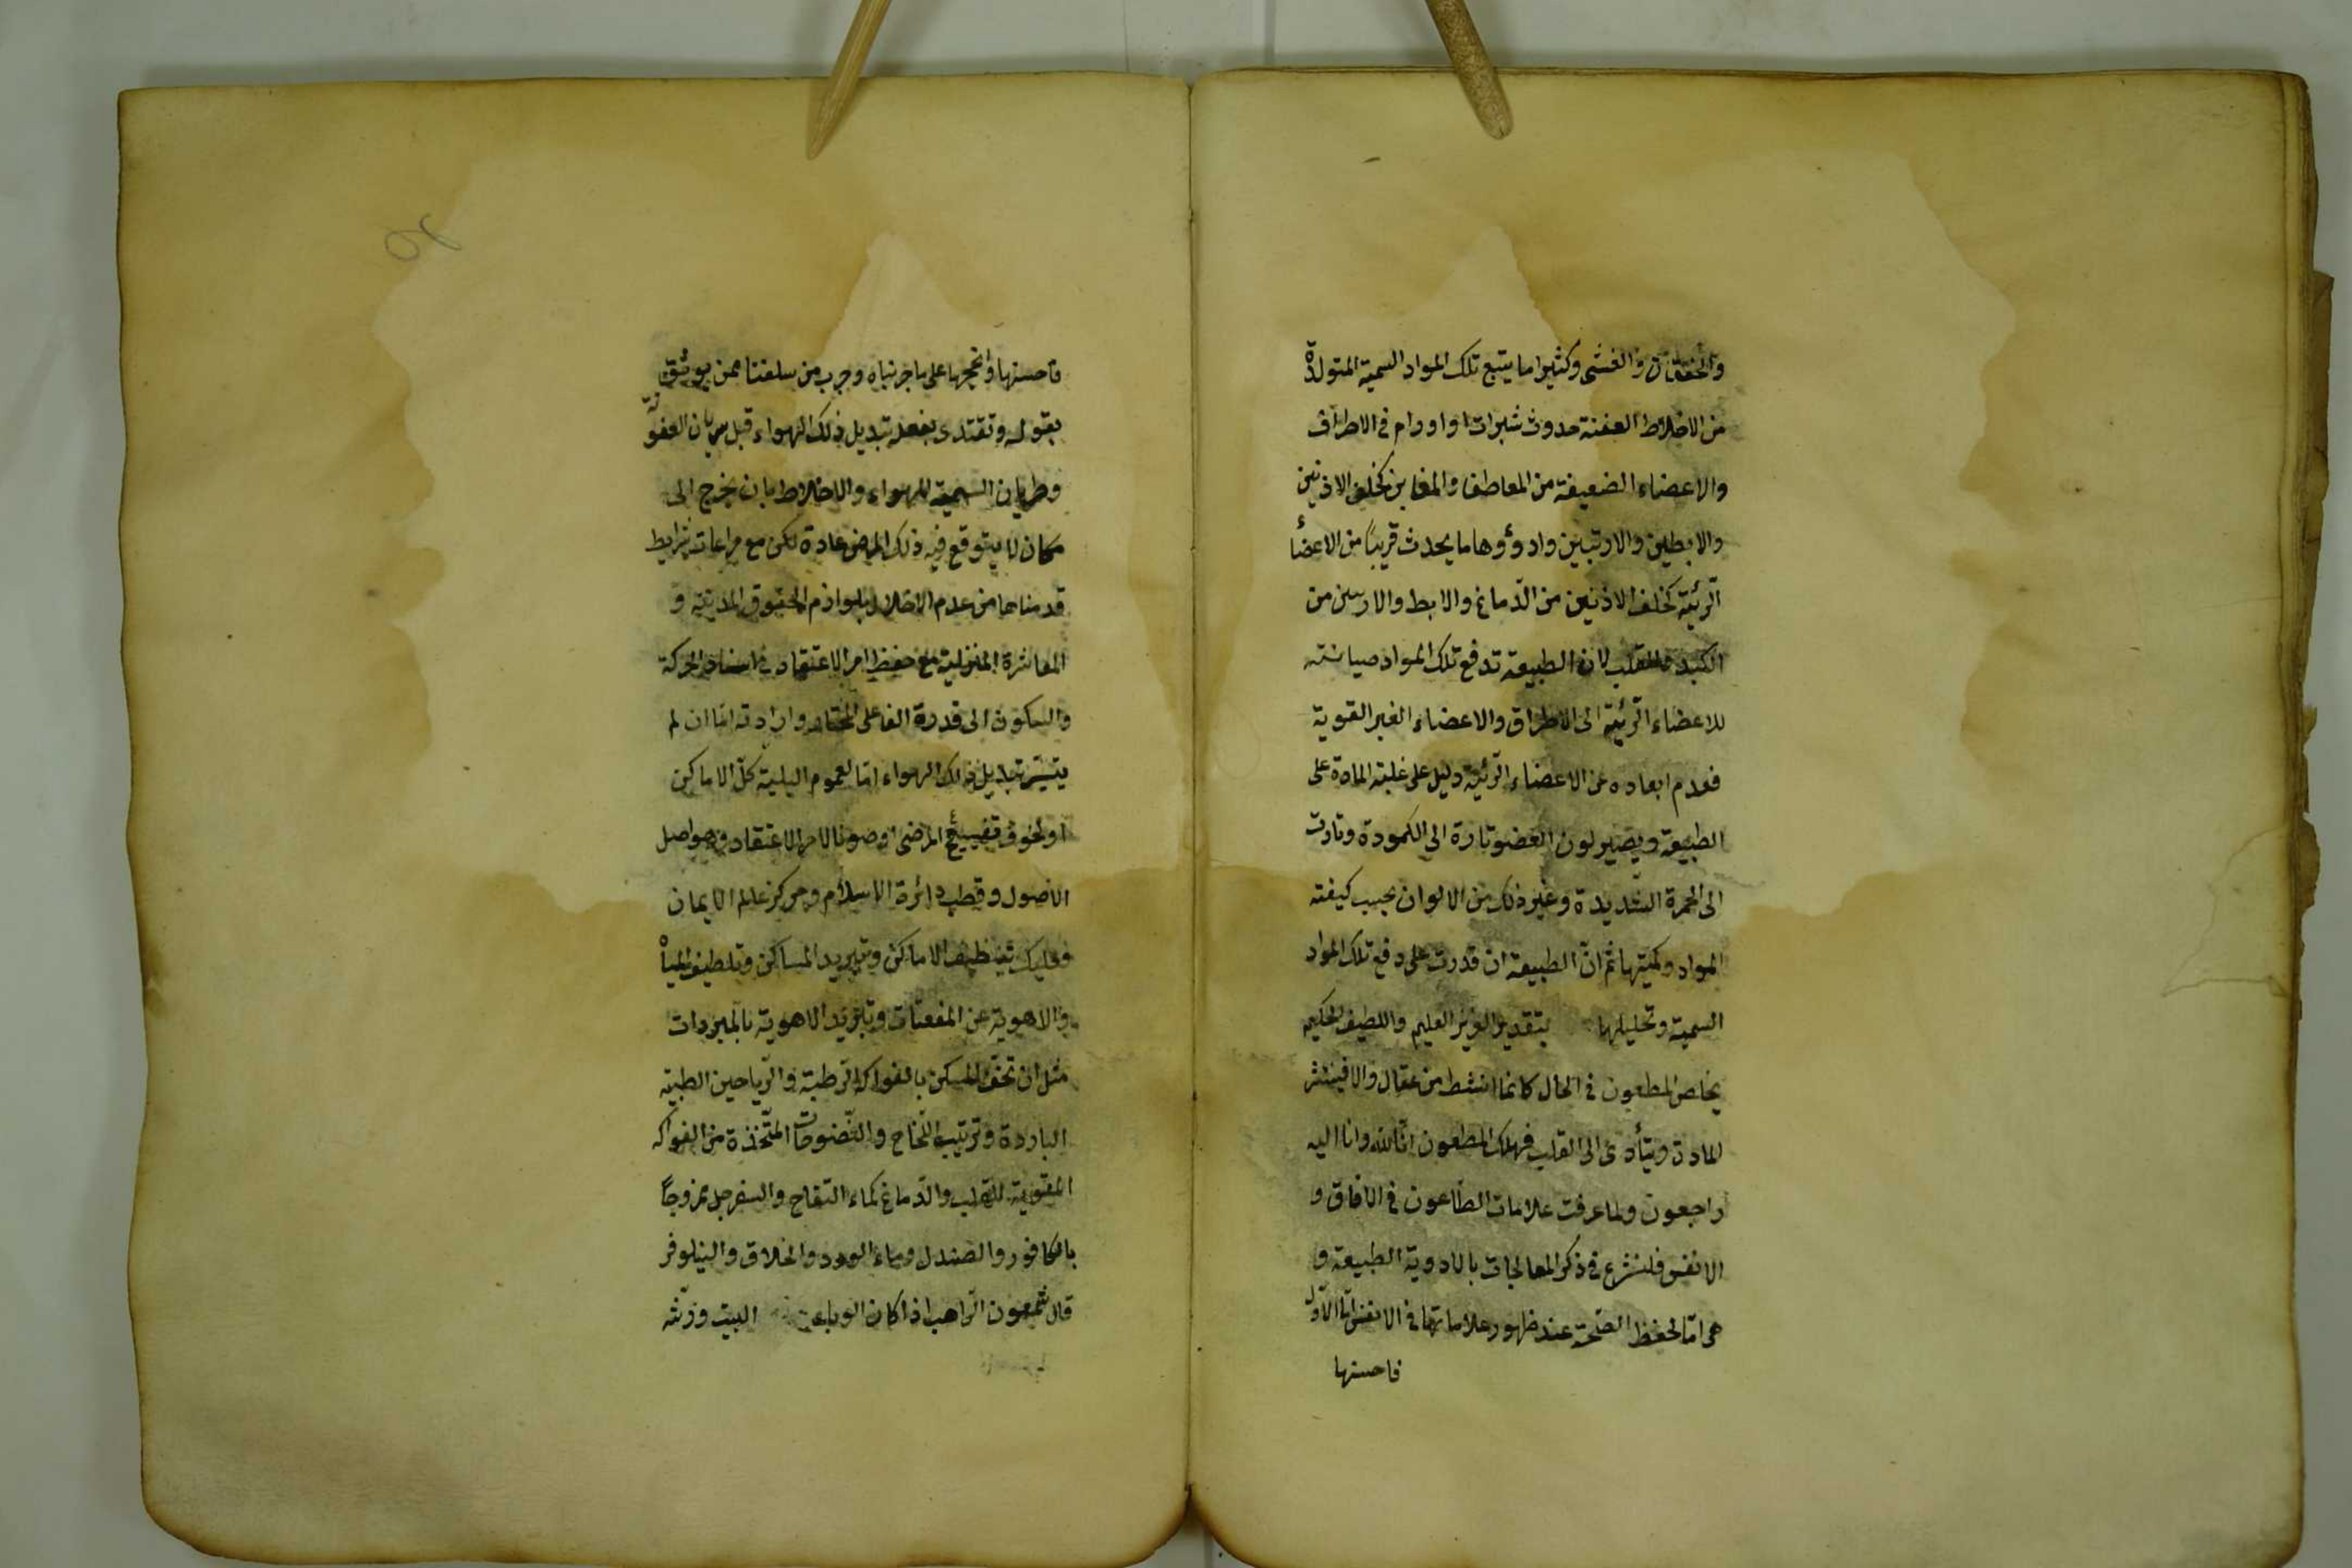 والخفقان والغشى وكثيرا ما يتبع تلك المواد السمية المتولدة
من الاخلاط العفنة حدوث شبرات او اورام فى الاطراف
والاعضاء الضعيفة من المعاطف والمغابن كخلف الاذنين
والابطين والاربتين واردؤوها ما يحدث قريباً من الاعضأ
الرئية كخلف الاذنين من الدّماغ والابط والاربتين من
الكبد والقلب لان الطبيعة تدفع تلك المواد صيانته
للاعضاء الرئية الى الاطراف والاعضاء الغير القوية
فعدم ابعاده عن الاعضاء الرئية دليل على غلبة المادة على
الطبيعة ويصير لون العضو تارة الى الكمودة وتارت
الى الحمرة الشديدة وغير ذلك من الالوان بحسب كيفته
المواد وكميّتها ثم انّ الطبيعة ان قدرت على دفع تلك المواد
السمية وتحليلها بتقدير العزيز العليم واللطيف الحكيم
يخلص المطعون فى الحال كانما انشط من عقال والا فينتشر
المادة ويتأدى الى القلب فهلك المطعون انّا لله وانا اليه
راجعون ولما عرفت علامات الطّاعون فى الافاق و
الانفس فلنشرع فى ذكر المعالجات بالادوية الطبيعة و
هى امّا لحفظ الصّحة عند ظهور علاماتها فى الانفس امّا الاوّل
فاحسنها
فاحسنها وانجحها على ما جربناه وجرب من سلفنا ممن يوثق
بقوله وتقتدى بفعله تبديل ذلك الهواء قبل سريان العفونة
وطريان السمية للهواء والاخلاط بان يخرج الى
مكان لا يتوقع فيه ذلك المرض عادة لكن مع مراعات شرايط
قدمناها من عدم الاخلال بلوازم الحقوق المدنية و
المعاشرة المنزلية مع حفظ امر الاعتقاد فى اسناد الحركة
والسكون الى قدرة الفاعل المختار وارادته امّا ان لم
يتيسّر تبديل ذلك الهواء امّا لعموم البلية كلّ الاماكن
او لخوف تضييع المرضى او صونا لامر الاعتقاد وهو اصل
الاصول وقطب دائرة الاسلام ومركز عالم الايمان
فعليك تنظيف الاماكن وتبريد المساكن وتلطيف المياه
والاهوية عن المفعنّات وتبريد الاهوية بالمبردات
مثل ان تحف المسكن بالفواكه الرطبة والرّياحين الطيبة
الباردة وترتيب اللّخاخ والنّضوحات المتّخذة من الفواكه
المقوية للقلب والدّماغ كماء التفاح والسفرجل ممزوجاً
بالكافور والصندل وماء الورد والخلاف والنيلوفر
قال شمعون الرّاهب اذا كان الوباء البيت ورشّه